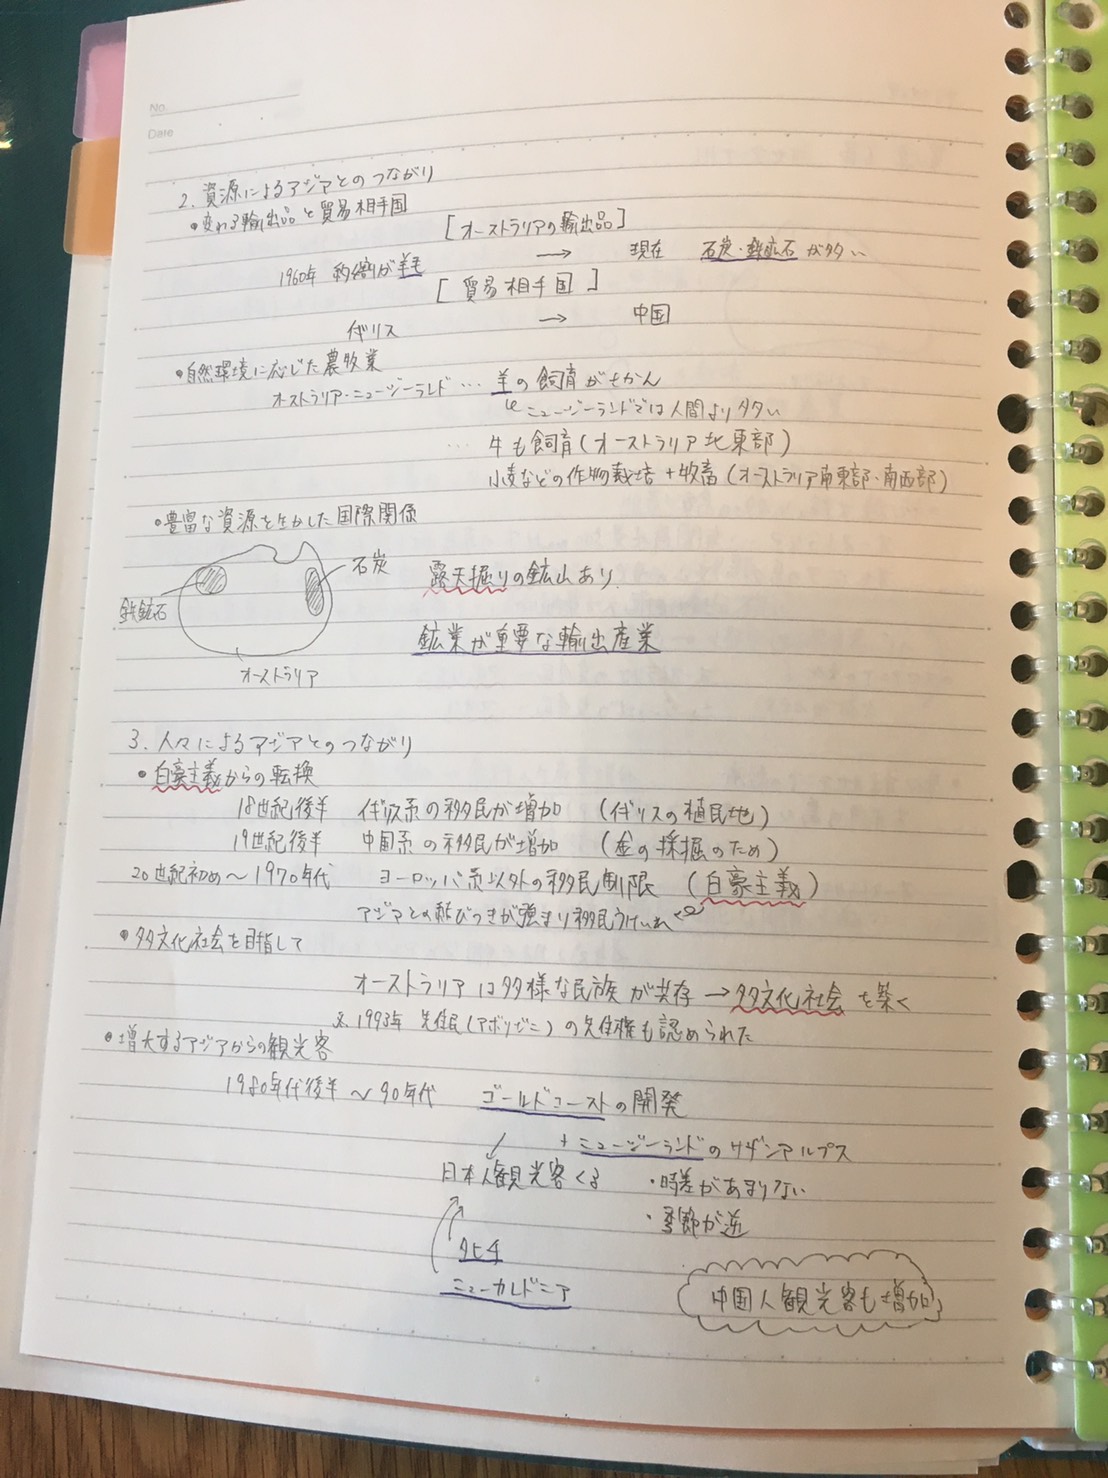 No.
Date
2. 資源によるアジアとのつながり
・変わる輸出品と貿易相手国
[オーストラリアの輸出品]
1960年 約4割が羊毛 → 現在 石炭・鉄鉱石が多い
[貿易相手国]
イギリス → 中国
・自然環境に応じた農牧業
オーストラリア・ニュージーランド … 羊の飼育がさかん
ニュージーランドでは人間より多い
… 牛も飼育(オーストラリア北東部)
小麦などの作物栽培+牧畜(オーストラリア南東部・南西部)
・豊富な資源を生かした国際関係
石炭
露天掘りの鉱山あり
鉄鉱石
鉱業が重要な輸出産業
オーストラリア
3. 人々によるアジアとのつながり
・白豪主義からの転換
18世紀後半 イギリス系の移民が増加 (イギリスの植民地)
19世紀後半 中国系の移民が増加 (金の採掘のため)
20世紀初め〜1970年代 ヨーロッパ系以外の移民制限 (白豪主義)
アジアとの結びつきが強まり移民うけいれ
・多文化社会を目指して
オーストラリアは多様な民族が共存→多文化社会を築く
※1993年 先住民(アボリジニ)の先住権も認められた
・増大するアジアからの観光客
1980年代後半〜90年代 ゴールドコーストの開発
+ニュージーランドのサザンアルプス
日本人観光客くる ・時差があまりない
・季節が逆
タヒチ
ニューカレドニア
中国人観光客も増加